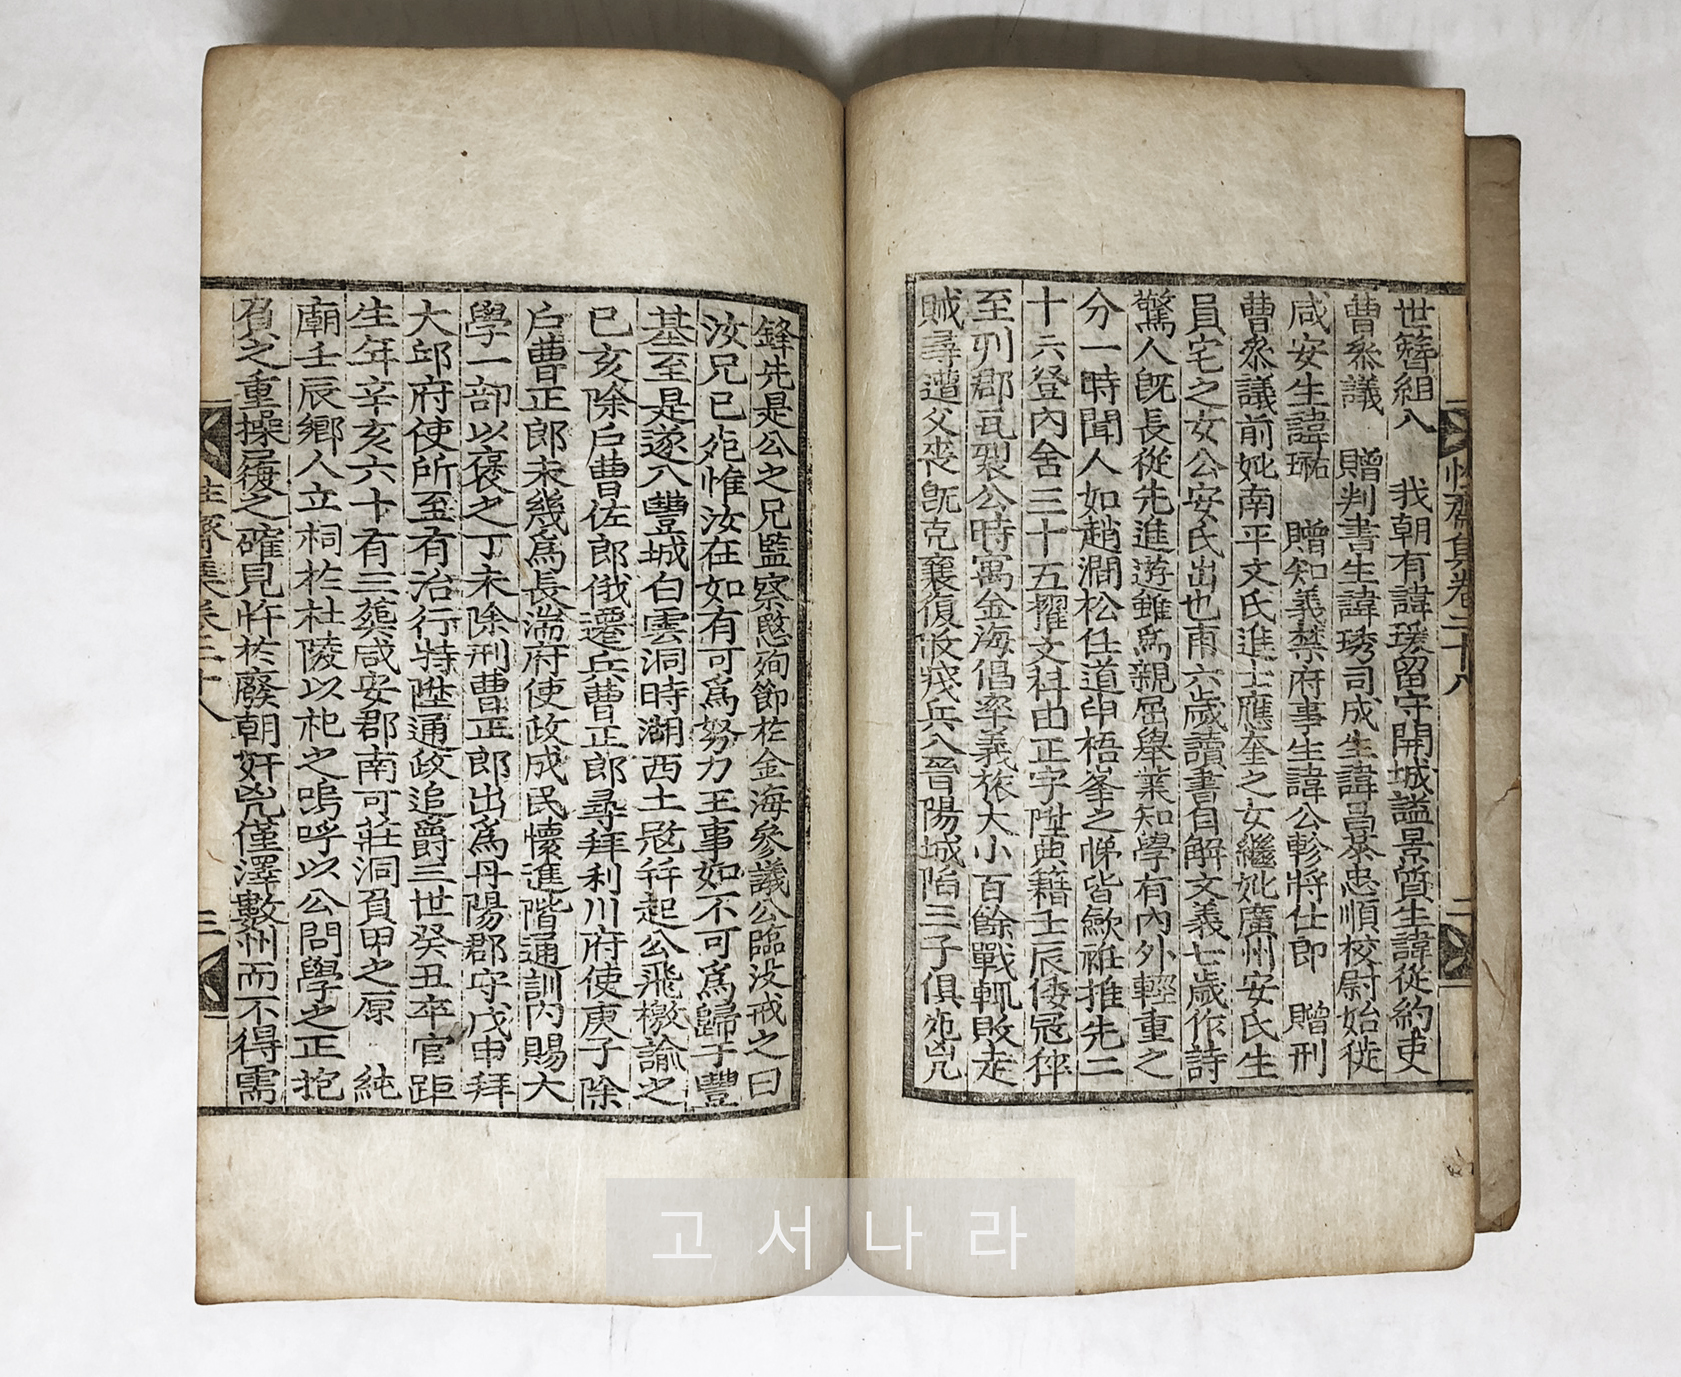 世簪組入　我朝有諱瑗留守開城謚景質生諱從約吏
曹叅議　贈判書生諱琇司成生諱昌恭忠順校尉始徙
咸安生諱琳　贈知義禁府事生諱公軫將仕郎　贈刑
曹叅議前妣南平文氏進士應奎之女繼妣廣州安氏生
員宅之女公安氏出也甫六歲讀書自解文義七歲作詩
驚人旣長從先進遊雖爲親屈舉業知學有內外輕重之
分一時聞人如趙澗松任道申梧峯之悌皆歛袵推先二
十六登內舍三十五擢文科由正字陞典籍壬辰倭冦猝
至列郡瓦裂公時寓金海倡率義旅大小百餘戰輒敗走
賊尋遭父喪旣克襄復收殘兵入晉陽城陷三子俱死兇
鋒先是公之兄監察慜殉節於金海參議公臨没戒之曰
汝兄已死惟汝在如有可爲努力王事如不可爲歸于豐
基至是遂入豐城白雲洞時湖西土冦并起公飛檄諭之
已亥除戶曹佐郎俄遷兵曹正郎尋拜利川府使庚子除
戶曹正郎未幾爲長湍府使政成民懷進階通訓內賜大
學一部以褒之丁未除刑曹正郎出爲丹陽郡守戊申拜
大邱府使所至有治行特陞通政追爵三世癸丑卒官距
生年辛亥六十有三葬咸安郡南可莊洞負甲之原　純
廟壬辰鄉人立祠於杜陵以祀之嗚呼以公問學之正抱
負之重操履之確見忤於廢朝奸兇僅澤數州而不得需
性齋集卷二十八
三